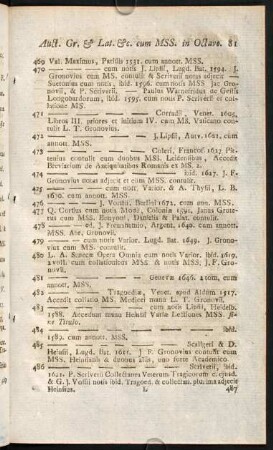 Auct. Gr. & Lat. &c. cum MSS. in Octavo. 81
469 Val. Maximus, Parisiis 1531. cum annot. MSS.
470 cum notis J. Lipsii, Lugd. Bat. 1594. J.
Gronovius cum MS. contulit & Scriverii notas adjecit
Suetonius cum notis, ibid. 1596. cum notis MSS. Jac. Gro-
novii, & P. Scriverii. Paulus Warnefridus de Gestis
Longobardorum, ibid. 1595. cum notis P. Scriverii et col-
latione MS.
471 Corradii, Venet. 1605
Libros III. priores et initium IV. cum MS. Vaticano con-
tulit L. T. Gronovius.
472 J. Lipsii, Antv. 1621, cum
annot. MSS.
473 Coleri, Francof. 1627
contulit cum duobus MSS. Leidensibus, Accedit
Breviarium de Antiquitatibus Romanis ex MS.
474 ibid. 1627. J. F.
Gronovius notas adjecit et cum MSS. contulit.
475 cum not. Varior. & A. Thysii, L. B.
1670. cum annot. MSS.
476 J. Vorstii, 1672, cum ann. MSS.
477 Q. Curtius cum notis Modii, Coloniae 1591. Janus Grute-
rus cum MSS. & Palat. contulit.
478 ed. J. Freinshemii, Argent. 1640. cum annott.
MSS. Abr. Gronovii.
479 cum notis Varior. Lugd. Bat. 1649. J. Grono-
vius cum MS. contulit.
480 L. A. Seneca Opera Omnia cum notis Varior. ibid. 1649.
2 voll. cum collationibus MSS. & notis MSS. J. F. Gro-
novii.
481 1646. 2 tom. cum
annot. MSS.
482 Tragoediae, Venet. apud Aldum 1517.
Accedit collatio MS. Medicei manu L. T. Gronovii.
483 cum notis Lipsii, Heidelb.
1588. Accedunt manu Heinsii Variae Lectiones MSS. sine
Titulo.
484 ibid.
1589. cum annott. MSS.
485 Scaligeri & D.
Heinsii, Lugd. Bat. 1611. J. F. Gronovius contulit cum
MSS.
486 Scriverii, ibid.
1621. P. Scriverii Collectanea Veterum Tragicorum c. ejusd.
& G. J. Vossii notis ibid. Tragoed. & collectan. plurima adjecit
Heinsius.
L 487